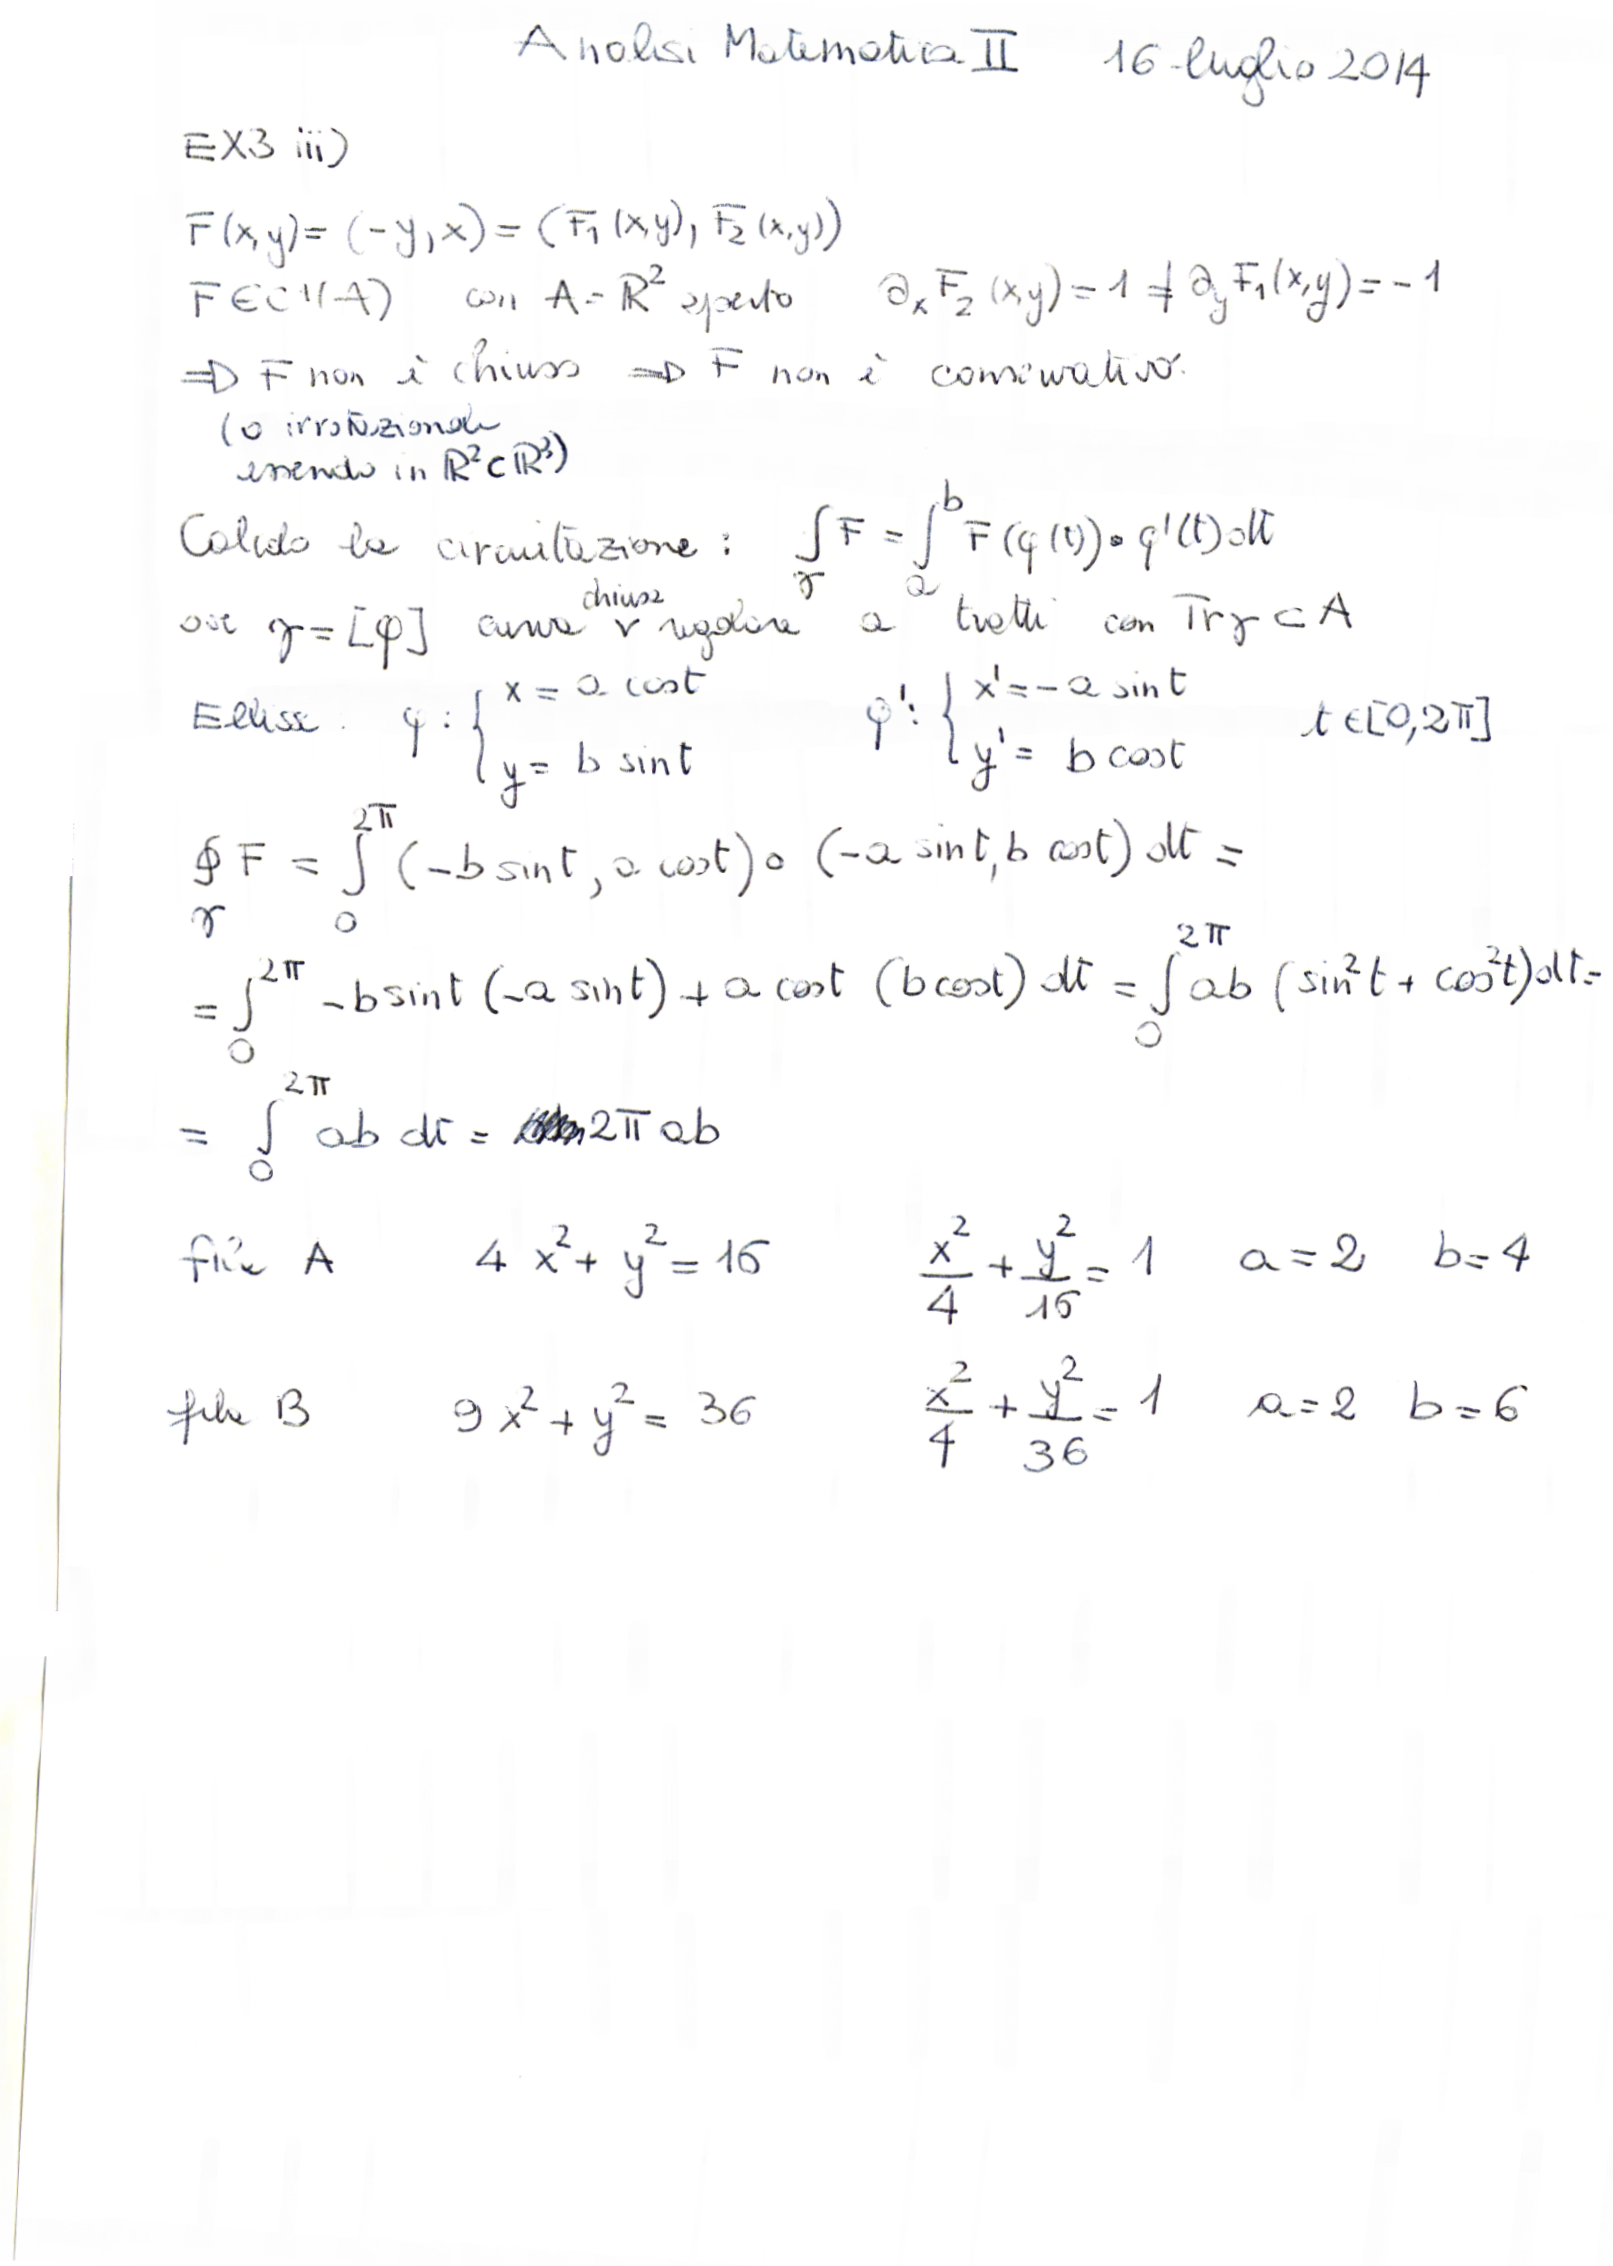 Analisi Matematica II 16 luglio 2014
EX3 iii)
F(x,y)= (-y,x) = (F₁(x,y), F₂(x,y))
F∈C¹(A) con A=ℝ² aperto ∂ₓF₂(x,y)=1 ≠ ∂ᵧF₁(x,y)=-1
⇒ F non è chiuso ⇒ F non è conservativo.
(o irrotazionale
essendo in ℝ²⊂ℝ³)
Calcolo la circuitazione : ∫_γ F = ∫_a^b F(φ(t))•φ'(t)dt
ove γ=[φ] curva chiusa regolare a tratti con Trγ ⊂ A
Ellisse. φ:{ x = a cost y = b sint φ':{ x'=-a sint y'= b cost t∈[0,2π]
∮_γ F = ∫_0^{2π} (-b sint, a cost)∘(-a sint, b cost) dt =
= ∫_0^{2π} -b sint (-a sint) + a cost (b cost) dt = ∫_0^{2π} ab (sin²t + cos²t)dt=
= ∫_0^{2π} ab dt = 2π ab
fila A 4 x²+ y² = 16 x²/4 + y²/16 = 1 a=2 b=4
fila B 9 x² + y² = 36 x²/4 + y²/36 = 1 a=2 b=6